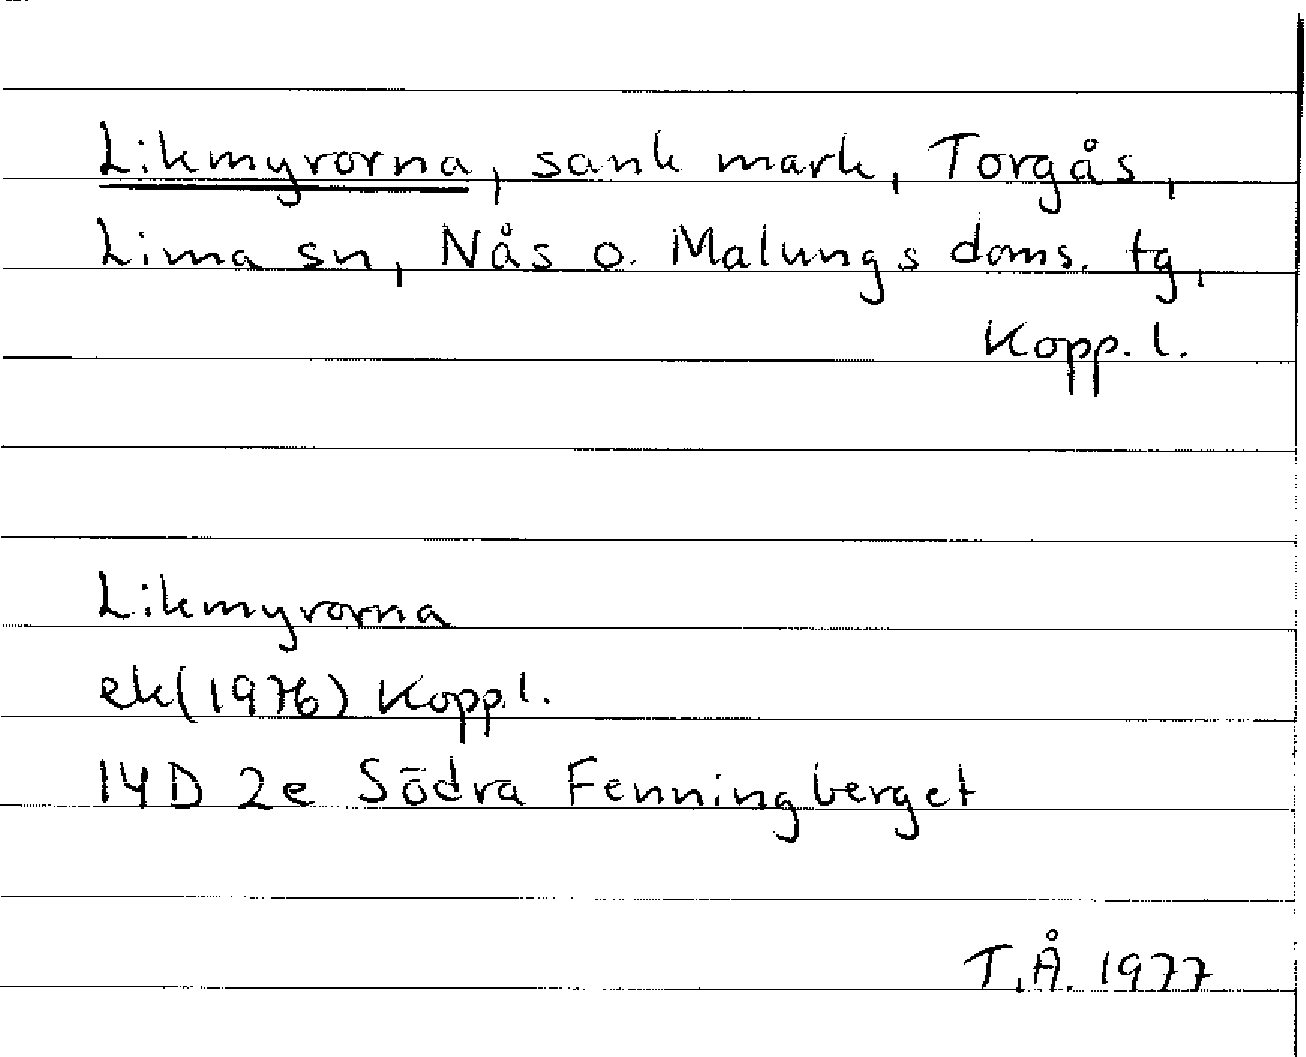 Likmyrorna, sank mark, Torgås,
Lima sn, Nås o. Malungs doms. tg,
Kopp. l.
Likmyrorna
ek(1976) Kopp.l.
14D 2e Södra Fenningberget
T.Å. 1977